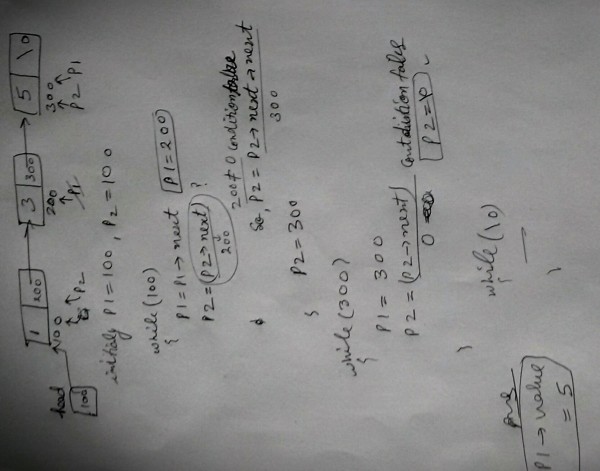 head
100
1 200
3 300
5 \0
100
200
300
P2
P1
P2 P1
initialy P1=100, P2=100
while (100)
{
P1=P1→next P1=200
P2=(P2→next)?
200
200≠0 condition
So, P2=P2→next→next
300
P2=300
}
while (300)
{
P1=300
P2=(P2→next)
0
P2=\0
}
while (\0)
{
}
P1→value
=5